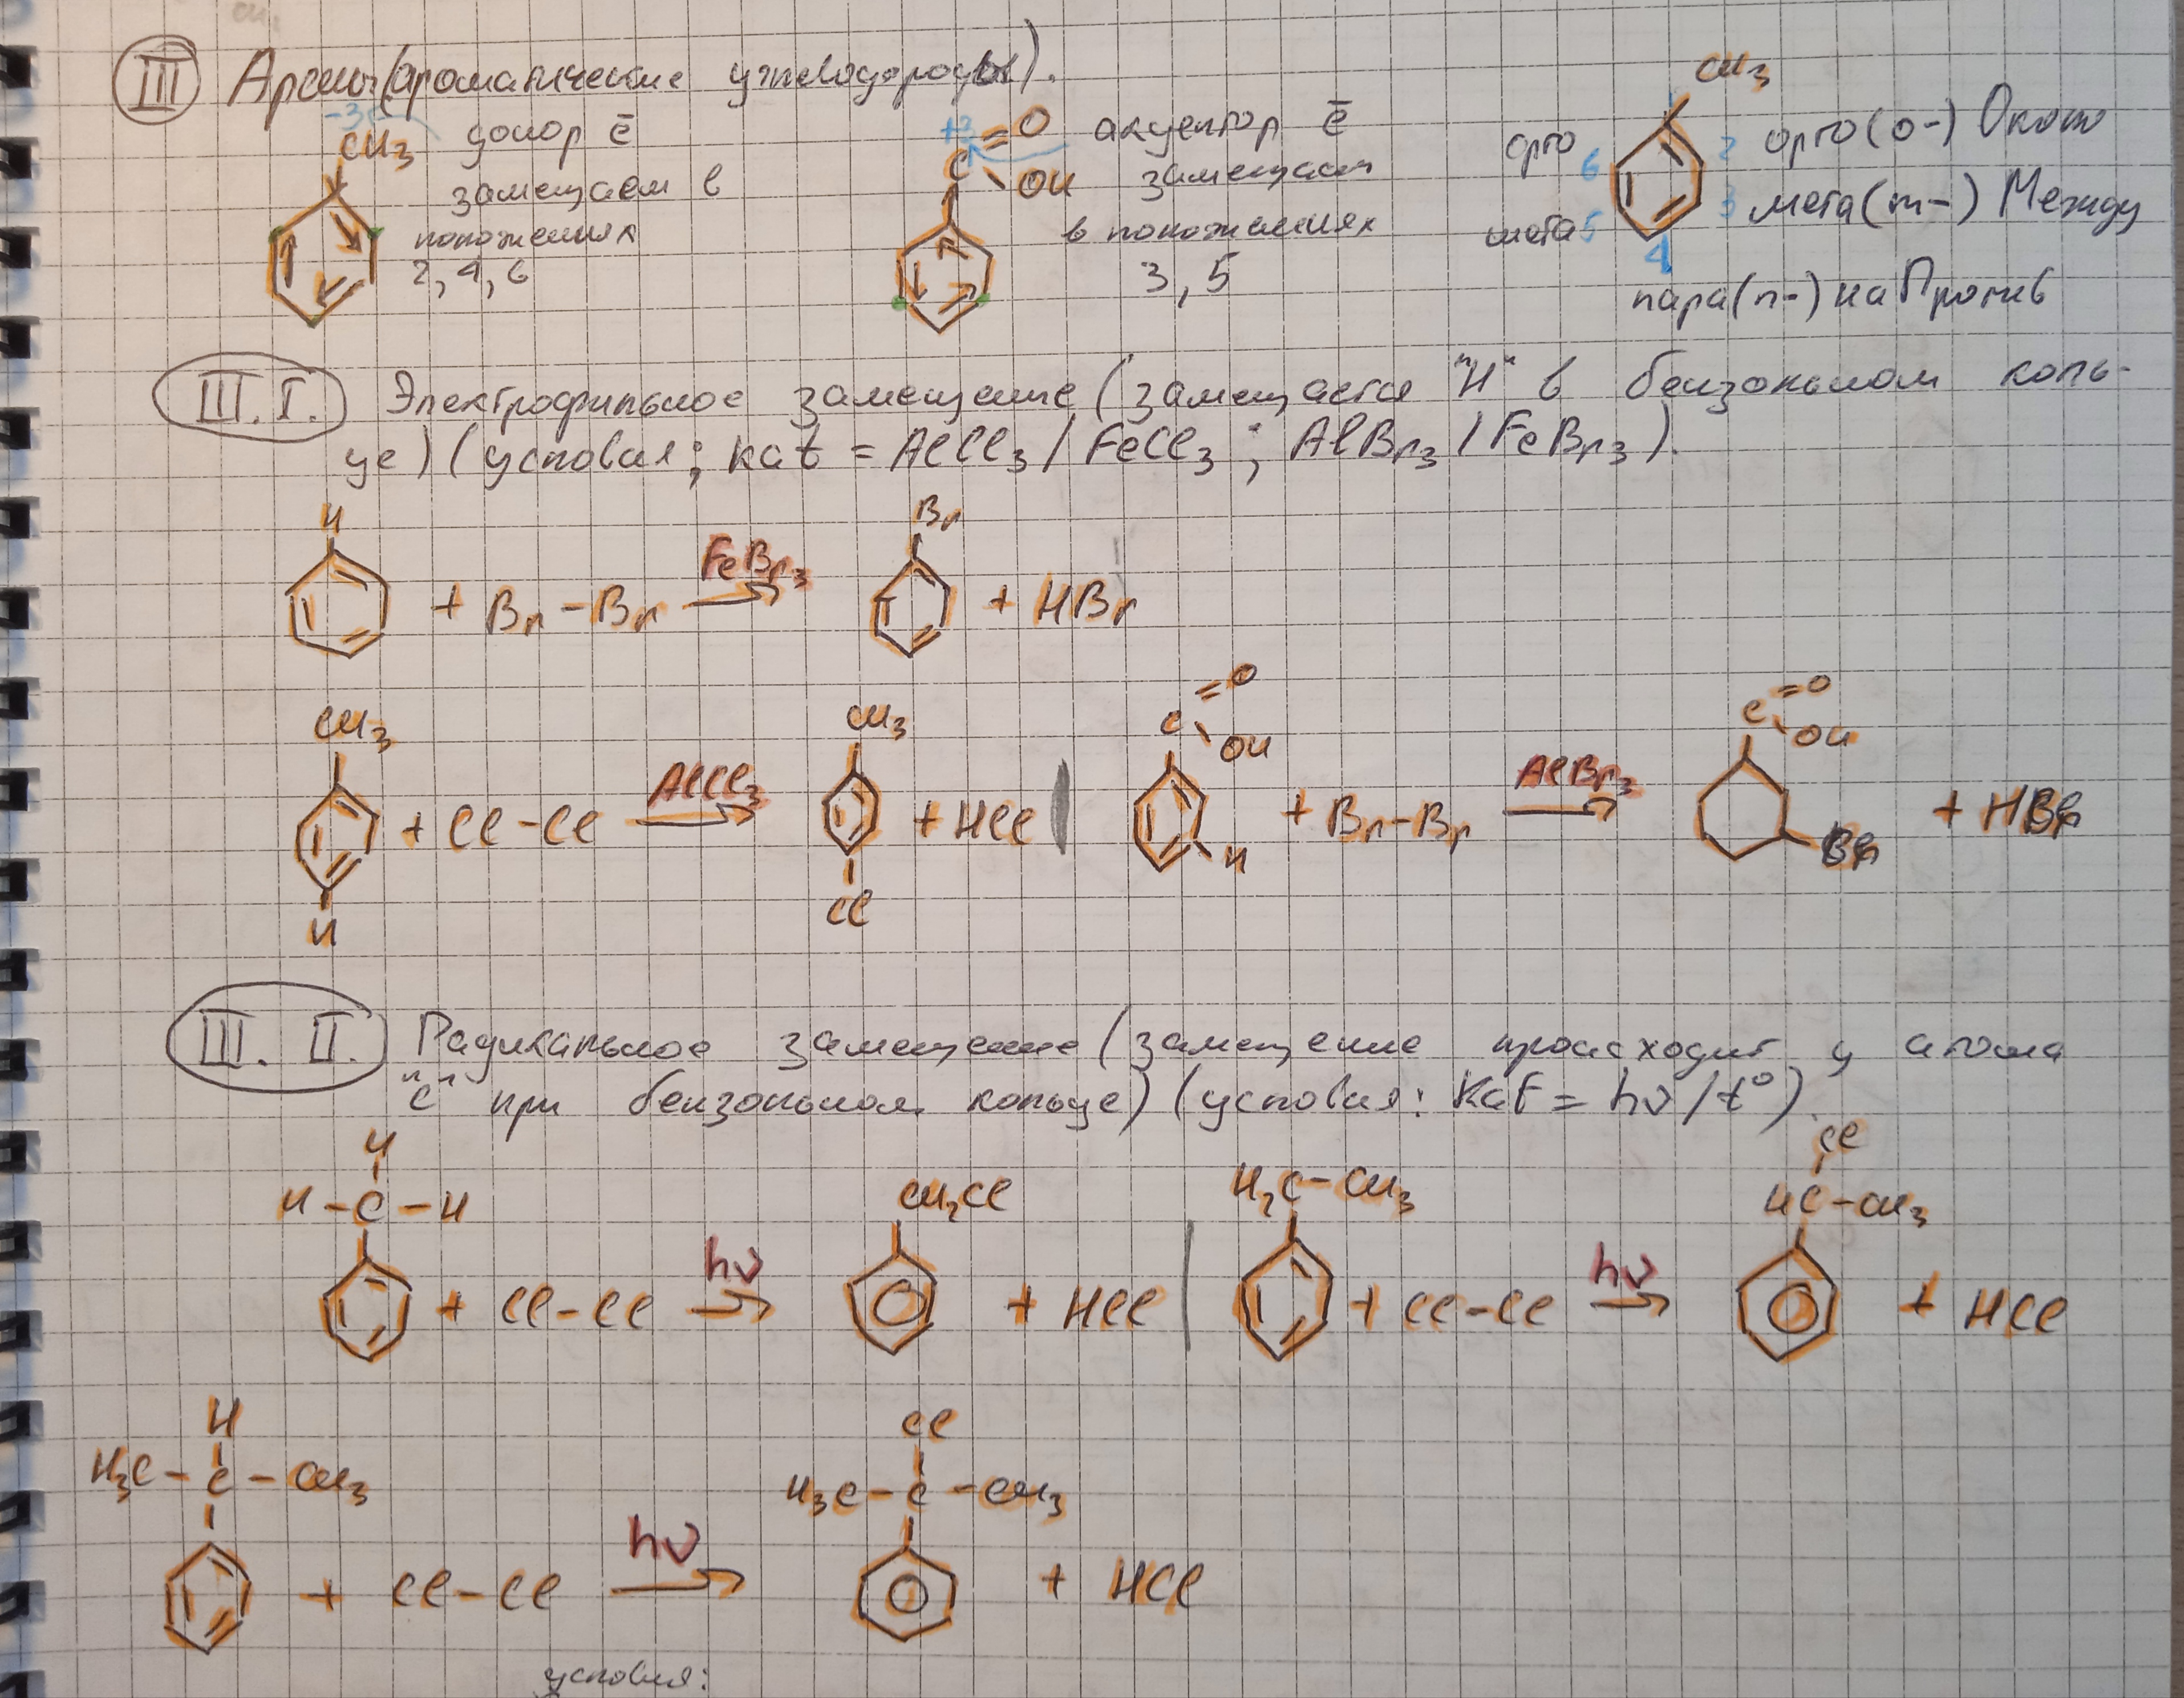 III Арены (ароматические углеводороды).
-3
CH3 донор ē
замещаем в
положениях
2, 4, 6
+3
C =O
OH
акцептор ē
замещаем
в положениях
3, 5
CH3
1
орто 6 2 орто (о-) Около
мета 5 3 мета (m-) Между
4
пара (п-) наПротив
III. I. Электрофильное замещение (замещается "H" в бензольном коль-
це) (условия; kat = AlCl3 / FeCl3 ; AlBr3 / FeBr3).
H
+ Br-Br
FeBr3
Br
+ HBr
CH3
H
+ Cl-Cl
AlCl3
CH3
Cl
+ HCl
C =O
OH
H
+ Br-Br
AlBr3
C =O
OH
Br
+ HBr
III. II. Радикальное замещение (замещение происходит у атома
"C" при бензольном кольце) (условия: kat = hν / t°).
H
H-C-H
+ Cl-Cl
hν
CH2Cl
+ HCl
H2C-CH3
+ Cl-Cl
hν
Cl
HC-CH3
+ HCl
H
H3C-C-CH3
+ Cl-Cl
hν
Cl
H3C-C-CH3
+ HCl
условия: